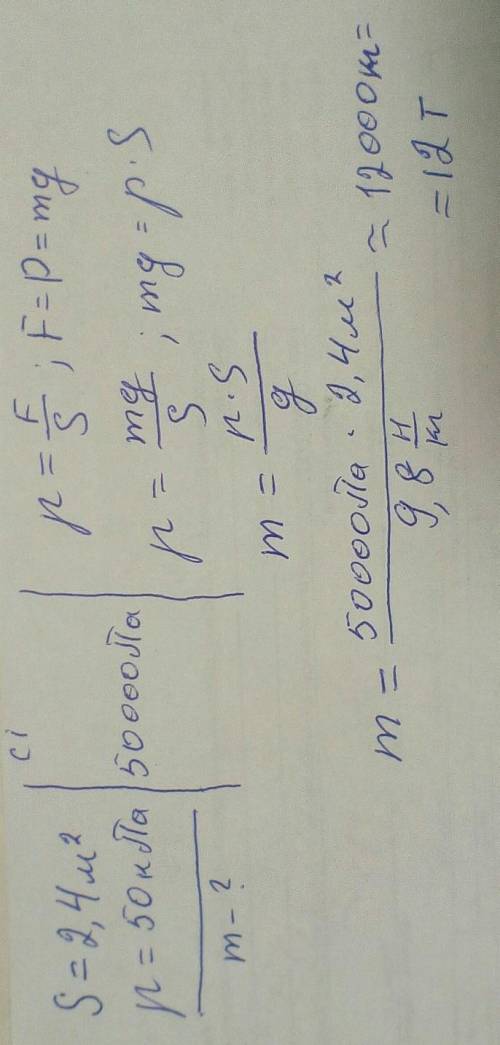 S = 2,4 м²
р = 50 кПа
m - ?
СІ
50000 Па
p = F/S ; F = P = mg
p = mg/S ; mg = p · S
m = p · S/g
m = 50000 Па · 2,4 м²/9,8 Н/m ≈ 12000 m =
= 12 т